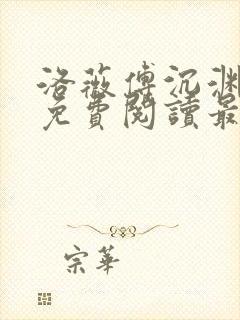 洛薇傅沉渊
免費閱讀最
宗華